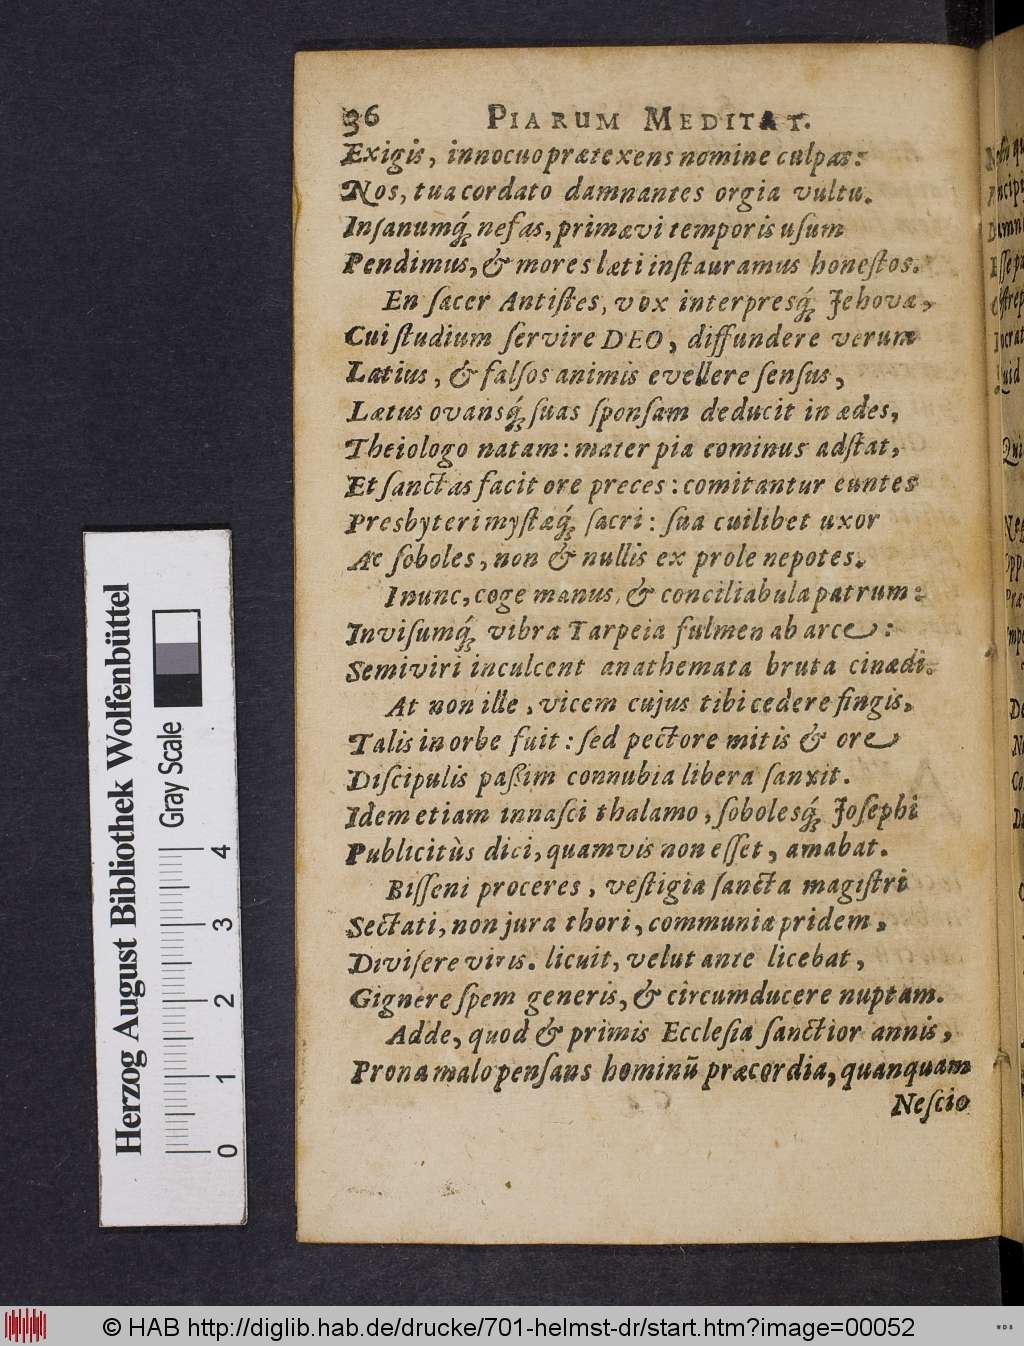 36 PIARUM MEDITAT.
Exigis, innocuo prætexens nomine culpas:
Nos, tua cordato damnantes orgia vultu.
Inſanumq́; nefas, primævi temporis uſum
Pendimus, & mores læti inſtauramus honeſtos.
En ſacer Antiſtes, vox interpresq́; Jehovæ,
Cui ſtudium ſervire DEO, diffundere verum
Latius, & falſos animis evellere ſenſus,
Lætus ovansq́; ſuas ſponſam deducit in ædes,
Theiologo natam: mater pia cominus adſtat,
Et ſanctas facit ore preces: comitantur euntes
Presbyteri myſtæq́; ſacri: ſua cuilibet uxor
Ac ſoboles, non & nullis ex prole nepotes.
I nunc, coge manus, & conciliabula patrum:
Inviſumq́; vibra Tarpeia fulmen ab arce:
Semiviri inculcent anathemata bruta cinædi.
At non ille, vicem cujus tibi cedere fingis,
Talis in orbe fuit: ſed pectore mitis & ore
Diſcipulis paßim connubia libera ſanxit.
Idem etiam innaſci thalamo, ſobolesq́; Joſephi
Publicitùs dici, quamvis non eſſet, amabat.
Biſſeni proceres, veſtigia ſancta magiſtri
Sectati, non jura thori, communia pridem,
Diviſere viris. licuit, velut ante licebat,
Gignere ſpem generis, & circumducere nuptam.
Adde, quod & primis Eccleſia ſanctior annis,
Prona malo penſans hominũ præcordia, quanquam
Neſcio
Herzog August Bibliothek Wolfenbüttel
Gray Scale
0 1 2 3 4
© HAB http://diglib.hab.de/drucke/701-helmst-dr/start.htm?image=00052